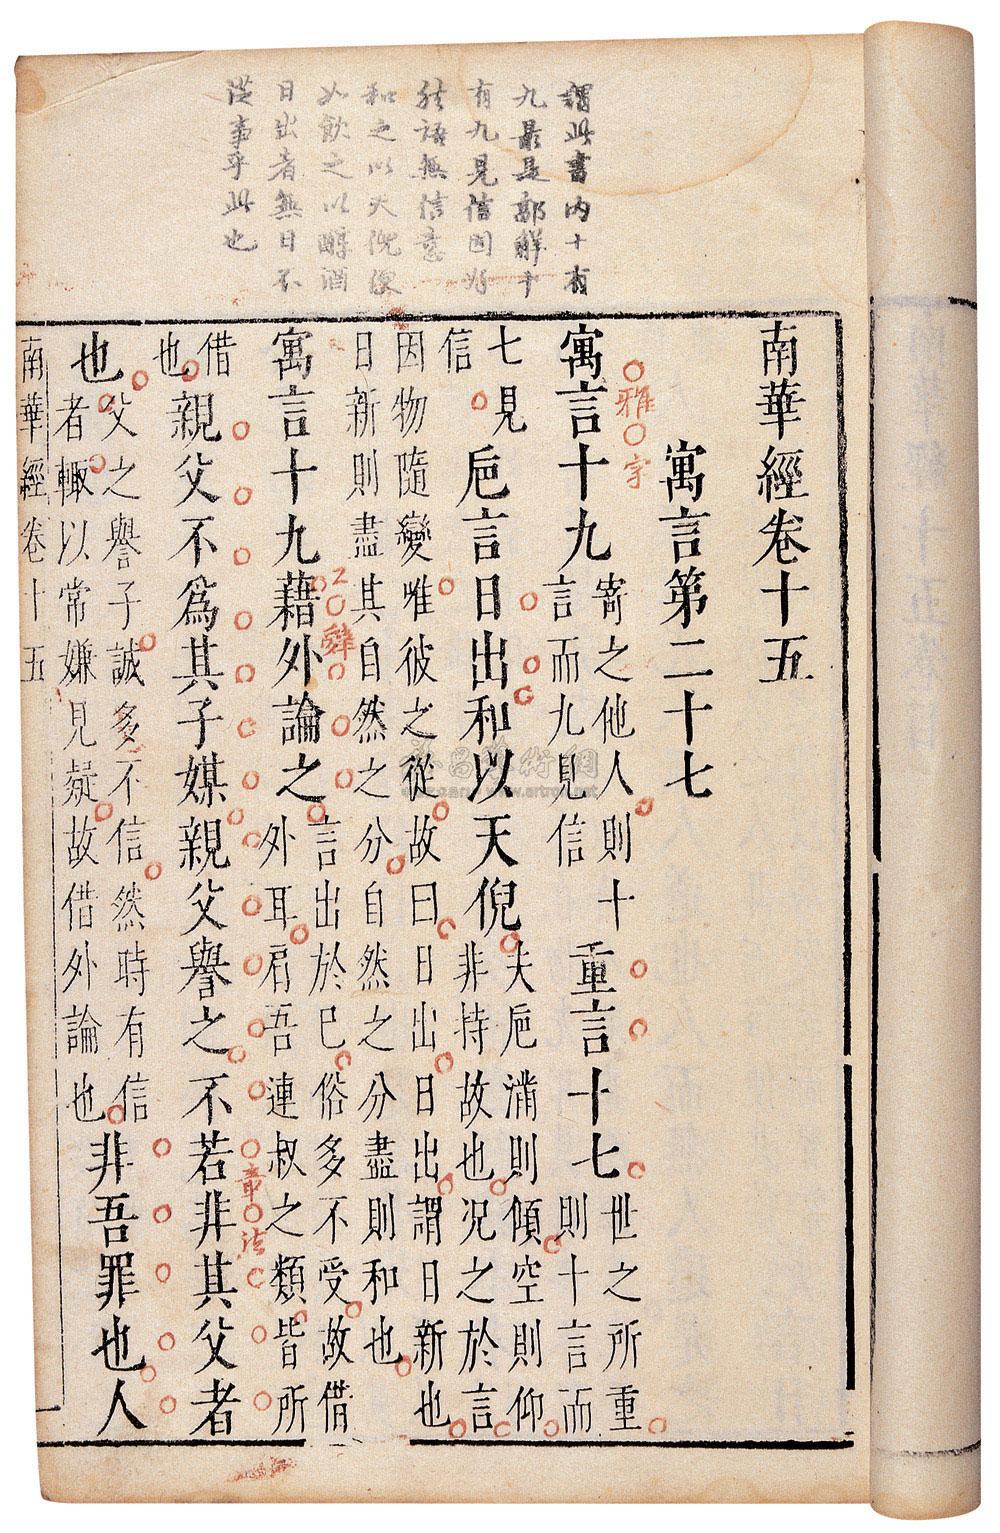 謂此書内十有
九最是郭解十
有九見信因好
然語無信意
和之以天倪便
如飲之以醇酒
日出者無日不
從事乎此也
南華經卷十五
寓言第二十七
雅字
寓言十九
寄之他人則十
言而九見信
重言十七
世之所重
則十言而
七見
信
巵言日出和以天倪
夫巵滿則傾空則仰
非持故也况之於言
因物隨變唯彼之從故曰日出日出謂日新也
日新則盡其自然之分自然之分盡則和也
寓言十九藉外論之
言出於巳俗多不受故借
外耳肩吾連叔之類皆所
章法
借
也
親父不爲其子媒親父譽之不若非其父者
也
父之譽子誠多不信然時有信
者輒以常嫌見疑故借外論也
非吾罪也人
南華經卷十五
www.artron.net